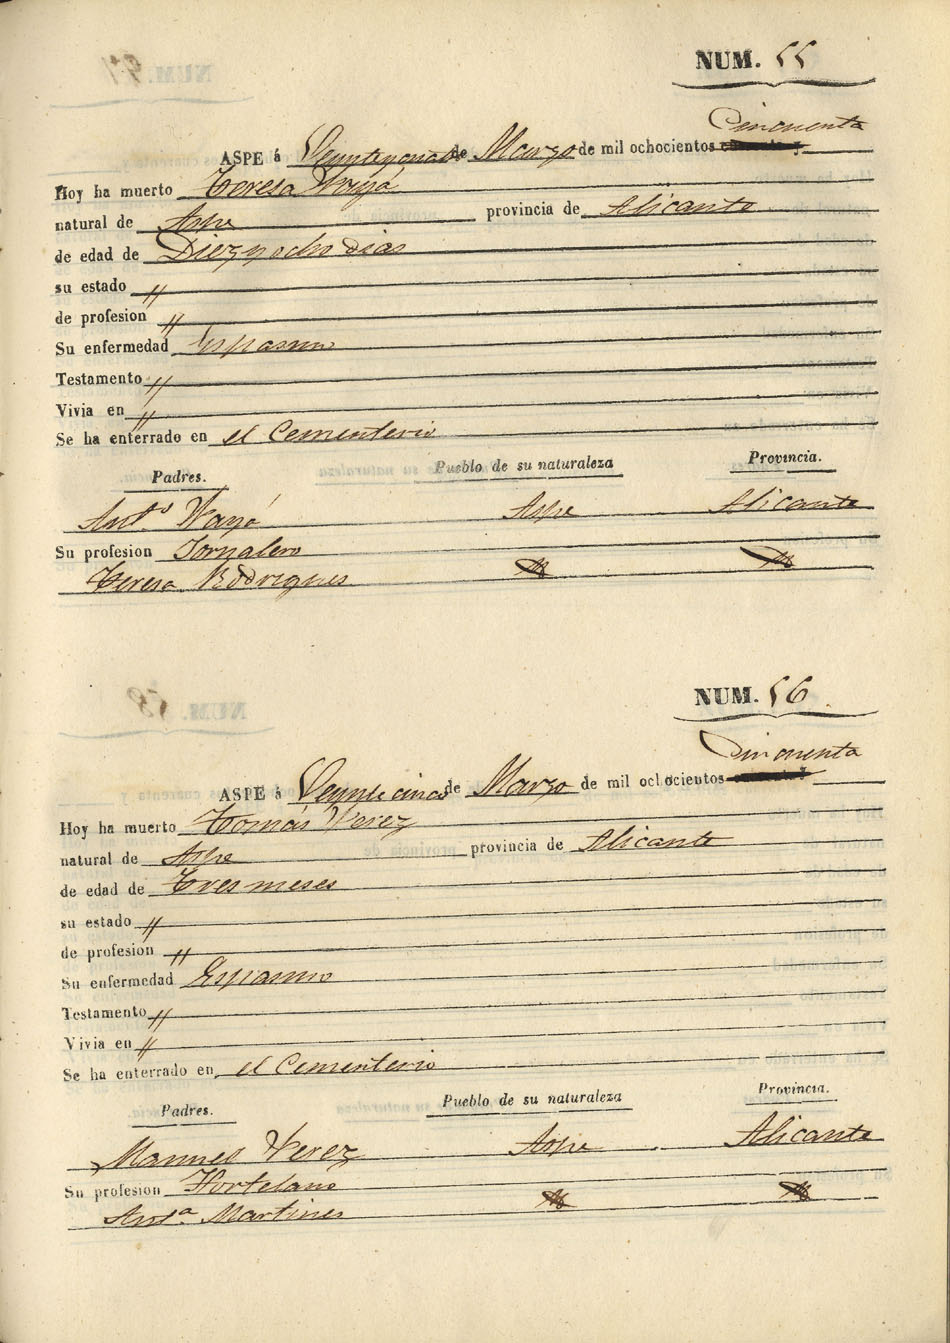 NUM. 55
Cincuenta
ASPE á Veynteycuatro de Marzo de mil ochocientos cuarenta y
Hoy ha muerto Teresa Payá
natural de Aspe provincia de Alicante
de edad de Diez y ocho dias
su estado //
de profesion //
Su enfermedad Espasmo
Testamento //
Vivia en //
Se ha enterrado en el Cementerio
Padres. Pueblo de su naturaleza Provincia.
Antº Payá Aspe Alicante
Su profesion Jornalero
Teresa Rodrigues
NUM. 56
Cincuenta
ASPE á Veynte cinco de Marzo de mil ochocientos cuarenta y
Hoy ha muerto Tomás Perez
natural de Aspe provincia de Alicante
de edad de Tres meses
su estado //
de profesion //
Su enfermedad Espasmo
Testamento //
Vivia en //
Se ha enterrado en el Cementerio
Padres. Pueblo de su naturaleza Provincia.
Manuel Perez Aspe Alicante
Su profesion Hortelano
Antª Martines